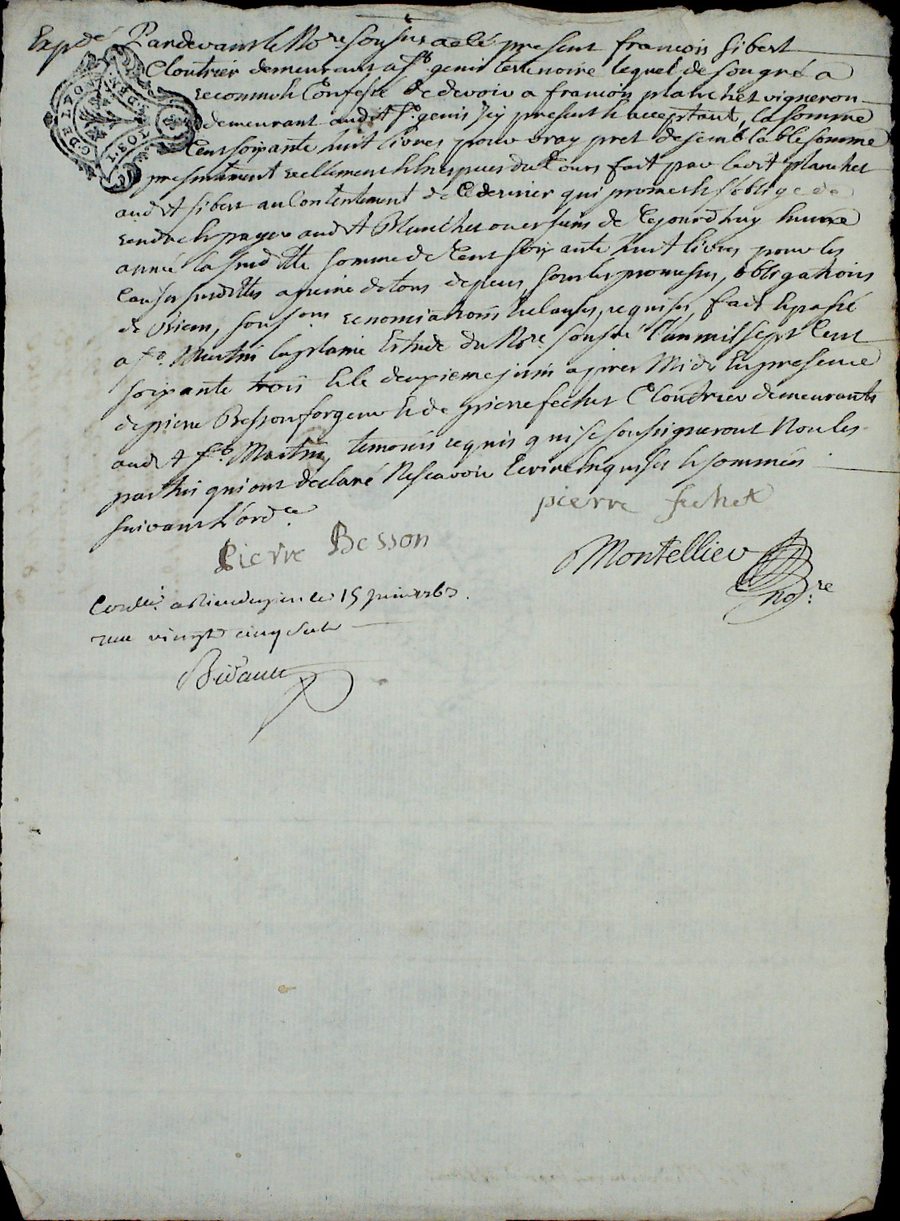 Expdé Pardevant le No.re soussigné present françois sibert
cloutrier demeurant a St genis terrenoire lequel de son gré a
reconnu et Confessé de devoir a françois planchet vigneron
demeurant audit St genis icy present et acceptant, la somme
Cent soixante huit livres pour vray pret de semblable somme
presentement reellement et en especes du Cours fait par ledt planchet
audt sibert au Contentement de Ce dernier qui promet et s'oblige de
rendre et payer audt Planchet ou es siens de Cejourdhuy en une
année la susditte somme de Cent soixante huit livres pour les
causes susdittes a peine de tous depens, sous les promesses, obligations
de Biens, soumissions renonciations et clauses requises, fait et passé
a St Martin la plaine Etude du No.re soussné L'an mil sept Cent
soixante trois et le deuxieme juin apres Midy En presence
de pierre Besson forgeur et de pierre fechet Cloutrier demeurants
audt St Martin, temoins requis qui se soussigneront Non les
parties qui ont declaré Ne scavoir Ecrire Enquises et sommées
suivant L'ord.ce
pierre fechet
Pierre Besson
Montellier
no.re
Conllé a Rivedegier le 15 juin 1763.
reçu vingt cinq sols
GDELYON